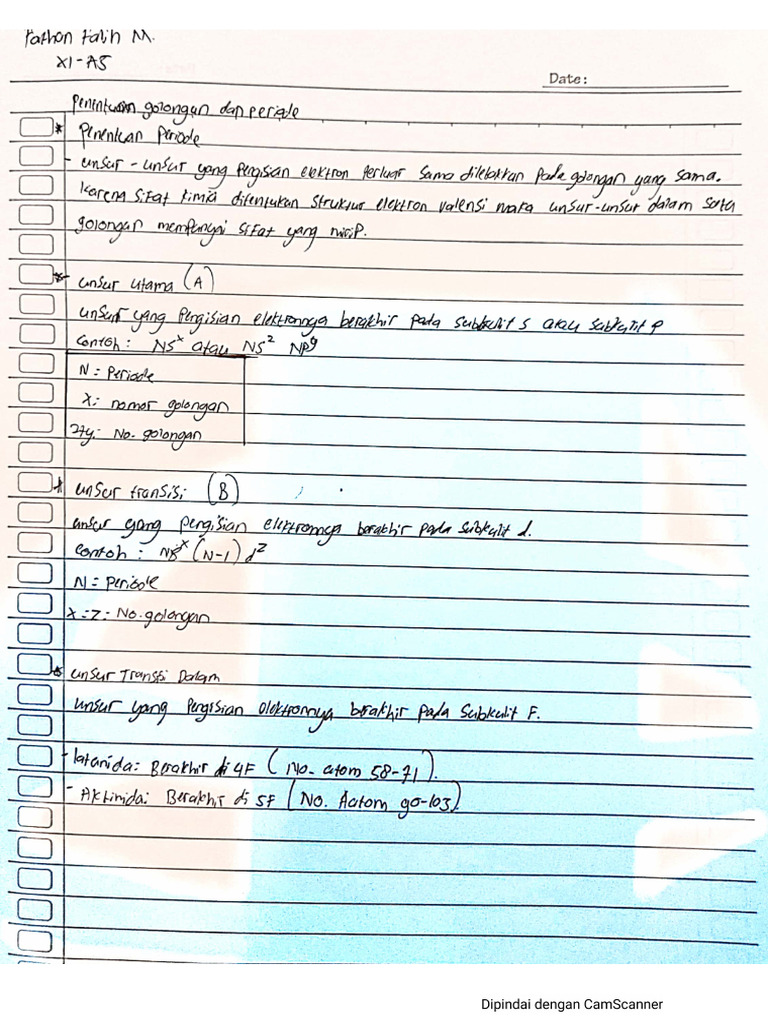 Fathon Fatih M.
XI-A5
Date:
Penintuan golongan dan periode
* Penentuan Periode
- unsur - unsur yang Pergisian elektron terluar sama diletakkan pada golongan yang sama.
karena sifat kimia ditentukan struktur elektron valensi maka unsur-unsur dalam satu
golongan mempunyai sifat yang mirip.
* unsur utama (A)
unsur yang pengisian elektronnya berakhir pada subkulit s atau subkulit p
contoh: NS^x atau NS^2 NP^y
N = Periode
X: nomor golongan
2+y: No. golongan
* unsur transisi (B)
unsur yang pengisian elektronnya berakhir pada subkulit d.
contoh : NS^x (N-1) d^z
N = Periode
x = z = No. golongan
* unsur Transisi Dalam
unsur yang Pergisian elektronnya berakhir pada subkulit F.
- latanida: Berakhir di 4F (No. atom 58-71).
- Aktinida: Berakhir di 5F (No. Aatom 90-103)
Dipindai dengan CamScanner